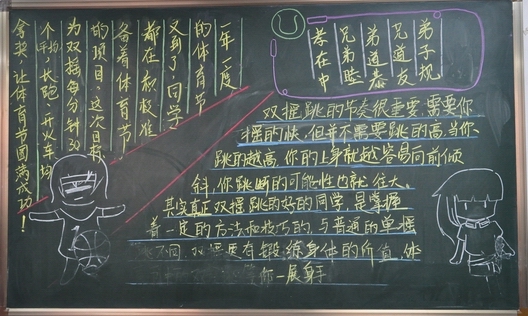 弟子规
兄道友
弟道恭
兄弟睦
孝在中
一年一度
的体育节
又到了,同学
都在积极准
备着体育节
的项目,这次目标
为双摇每分钟30
个,长跑,开火车均
拿奖,让体育节圆满成功!
双摇跳的节奏很重要,需要你
摇的快,但并不需要跳的高,当你
跳的越高,你的上身就越容易向前倾
斜,你跳断的可能性也就往大。
其实真正双摇跳的好的同学,是掌握
着一定的方法和技巧的,与普通的单摇
不同,双摇更有锻练身体的价值,体
你一展身手